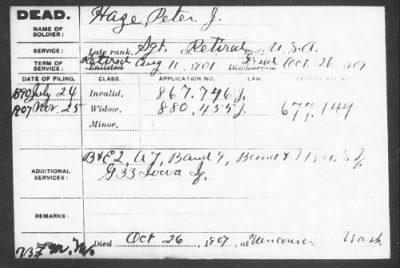 DEAD.
NAME OF SOLDIER:
Haze, Peter J.
SERVICE:
Late rank, Sgt. Retired U.S.A.
TERM OF SERVICE:
Retired Enlisted Aug 11, 1901 Died Discharged Oct. 26, 1907
DATE OF FILING. CLASS. APPLICATION NO. LAW. CERTIFICATE NO.
1890 July 24 Invalid, 867.746 J.
1907 Nov. 25 Widow, 880.455 J. 677.149
Minor,
ADDITIONAL SERVICES:
B & E 2, A 7, Band 9, Band
G 33 Iowa Inf.
REMARKS:
Died Oct 26, 1907, at Vancouver Wash